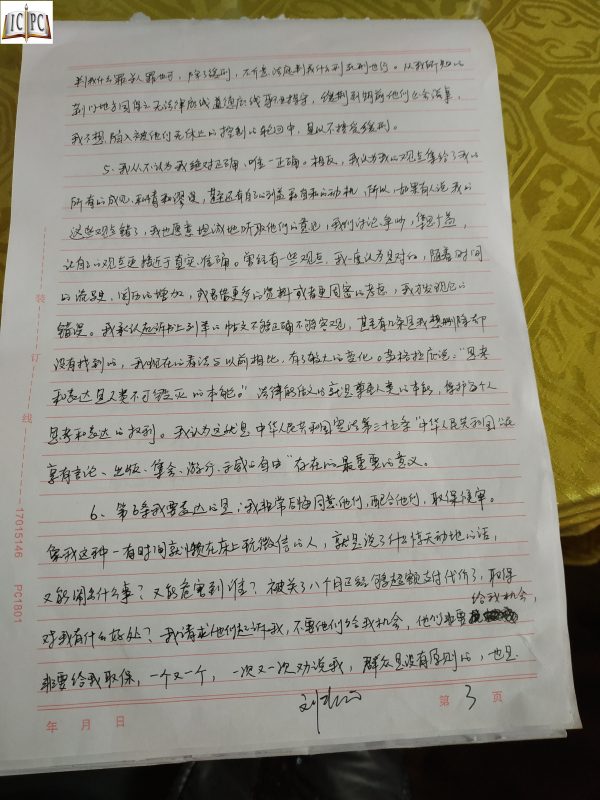 IC PC
判我什么罪我认罪也可，除了缓刑，不管法院判我什么刑无刑也行。从我所知的
到的地方国保无法律底线道德底线职业操守，缓刑到期前他们还会活集，
我不想陷入被他们无休止的控制的轮回中，是以不接受缓刑。
5、我从不认为我绝对正确、唯一正确。相反，我认为我的观点集合了我的
所有的成见、和情和谬误，甚至还有自己的利益和自私的动机，所以，如果有人说我的
这些观点错了，我也愿意坦诚地听取他们的意见，我们讨论、争吵，集思广益，
让自己的观点更接近于真实、准确。曾经有一些观点，我一度认为是对的，随着时间
的流逝，阅历的增加，或者偶更多的资料或者更周密的考虑，我才发现它的
错误。我承认起诉书上列举的帖文不够正确不够客观，甚至有几条是我想删除却
没有找到的，我现在的看法与以前相比，有了较大的变化。苏格拉底说："思考
和表达是人类不可毁灭的本能。"法律的后的应是尊重人类的本能，保护每个人
思考和表达的权利。我认为这就是中华人民共和国宪法第三十五条"中华人民共和国公民
享有言论、出版、集会、游行、示威的自由"存在的最重要的意义。
6、第6条我要表达的是：我非常后悔同意他们，配合他们，取保候审。
像我这种一有时间就懒在床上玩微信的人，就是说了什么惊天动地的话，
又能闹多什么事？又能危害到谁？被关了八个月已经够超额支付代价了，取保
对我有什么好处？我请求他们起诉我，不要他们给我机会，他们非要给我机会，
非要给我取保，一个又一个，一次又一次劝说我，群众是没有原则的，也是
年 月 日
第 3 页
装
订
线
17015146 PC1801